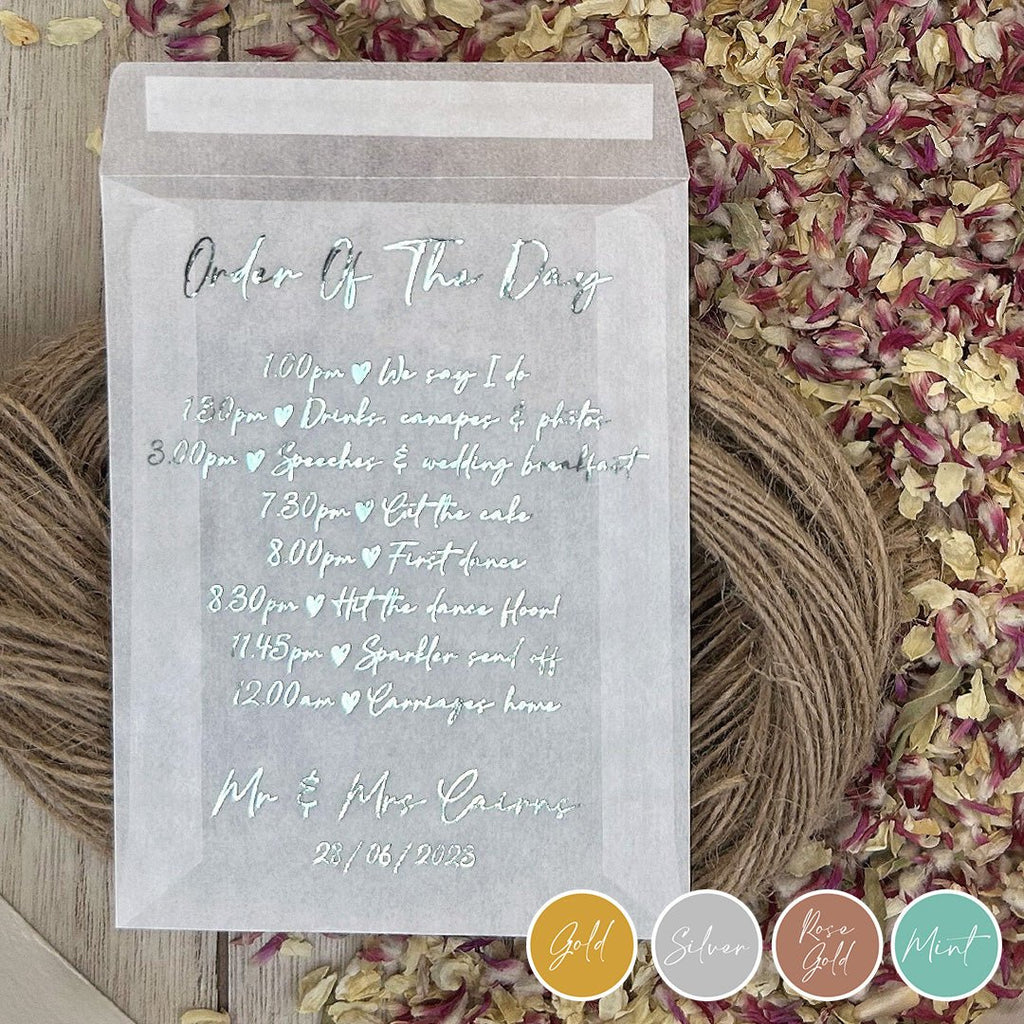 Order Of The Day
1.00pm ♥ We say I do
1.30pm ♥ Drinks, canapes & photos
3.00pm ♥ Speeches & wedding breakfast
7.30pm ♥ Cut the cake
8.00pm ♥ First dance
8.30pm ♥ Hit the dance floor!
11.45pm ♥ Sparkler send off
12.00am ♥ Carriages home
Mr & Mrs Cairns
28/06/2023
Gold
Silver
Rose
Gold
Mint